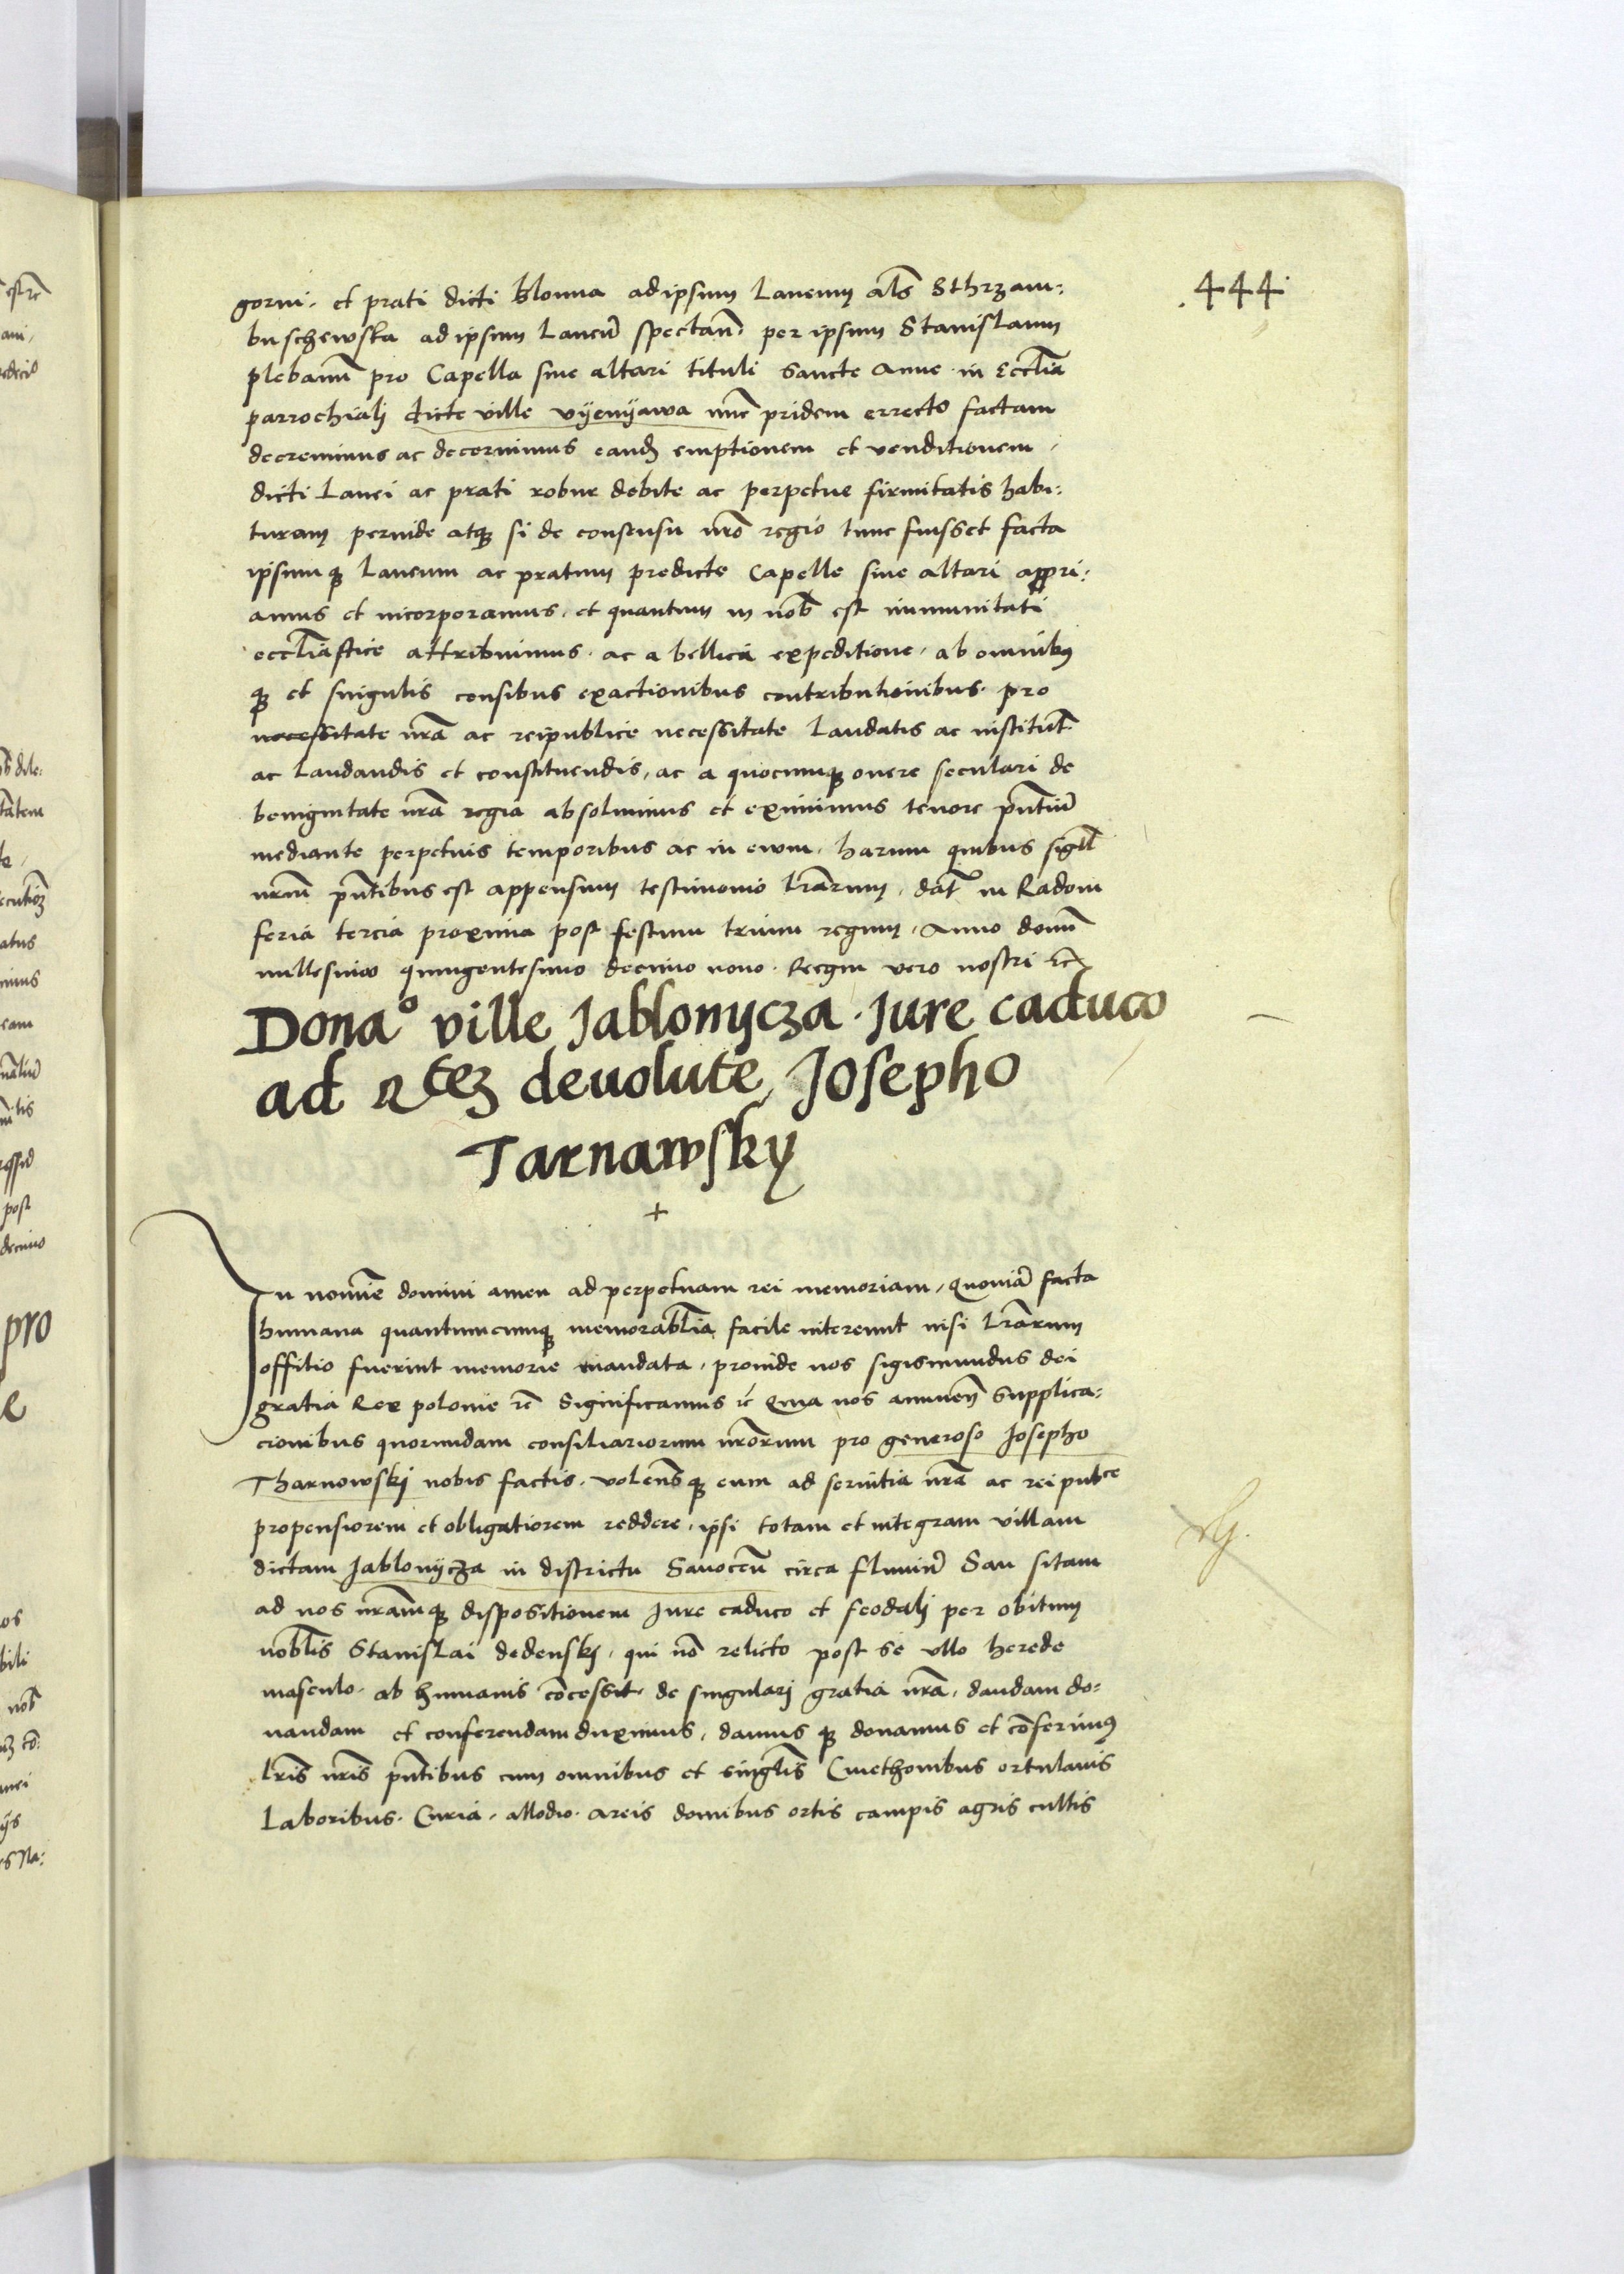 .444.
gorni. et prati dicti blonna ad ipsum Laneum als̄ Sthrzam:
buschewska ad ipsum Laneū spectan̄. per ipsum Stanislaum
plebanum pro Capella siue altari tituli Sancte Anne in Eccl̄ia
parrochialj dicte ville vÿenÿawa nūc pridem errecto factam
decreuimus ac decernimus eandꝫ emptionem et venditionem,
dicti Lanei ac prati robur debite ac perpetue firmitatis habi:
turam perinde atqꝫ si de consensu nr̄o regio tunc fuisset facta
ipsumqꝫ Laneum ac pratum predicte Capelle siue altari appri:
amus et incorporamus. et quantum in nob̄ est immunitati
eccl̄iastice attribuimus. ac a bellica expeditione, ab omnibꝰ
qꝫ et singulis censibus exactionibus contributionibus. pro
necessitate nr̄a ac reipublice necessitate Laudatis ac institut̄
ac Laudandis et constituendis, ac a quocumqꝫ onere seculari de
benignitate nr̄a regia absoluimus et eximimus tenore pn̄tiū
mediante perpetuis temporibus ac in ewm. harum quibus sigill̄
nr̄um pn̄tibus est appensum testimonio lr̄arum, dat̄ in Radom
feria tercia proxima post festum trium regum, Anno domī
millesimo quingentesimo decimo nono. Regni vero nostri ꝛc̄
Donaº ville Jablonycza. Jure caduco
ad Rᵗᵉᵐ deuolute, Josepho
Tarnawsky
+
In nomīe domini amen ad perpetuam rei memoriam, Quoniā facta
humana quantumcumqꝫ memorabl̄ia facile intereunt nisi lr̄arum
offitio fuerint memorie mandata, proinde nos sigismundus dei
gratia Rex polonie ꝛc̄ Significamus ꝛc̄ Quia nos annuen̄ supplica:
cionibus quorundam consiliariorum nr̄orum pro generoso Josepho
Tharnowskj nobis factis. volen̄sqꝫ eum ad seruitia nr̄a ac rei pubᶜᵉ
propensiorem et obligatiorem reddere, ipsi totam et integram villam
dictam Jablonÿcza in districtu Sanoceñ circa fluuiū San sitam
ad nos nr̄amqꝫ dispositionem Jure caduco et feodalj per obitum
nobl̄is Stanislai dedenskj, qui nō relicto post se vllo herede
masculo. ab humanis cōcessit. de singularj gratia nr̄a, dandam do:
nandam et conferendam duximus, damusqꝫ donamus et cōferimꝰ
lr̄is nr̄is pn̄tibus cum omnibus et singl̄is Cmethonibus ortulanis
Laboribus. Curia. allodio. areis domibus ortis campis agris cultis